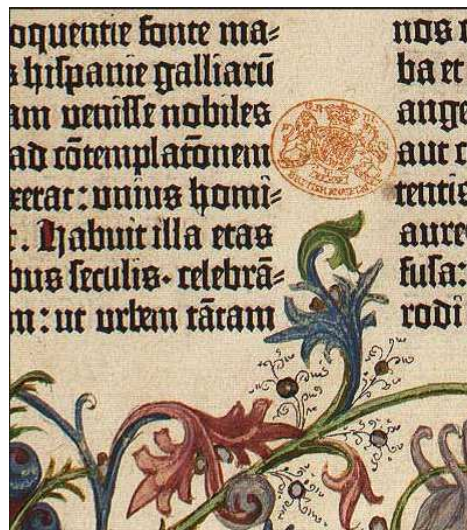 oquentie fonte ma⸗
s hispanie galliarū
am venisse nobiles
ad cōtemplatōnem
xerat: unius homi⸗
. Habuit illa etas
bus seculis· celebrā⸗
m: ut urbem tātam
nos
ba et
ange
aut c
tentis
aure
fusa:
rodi